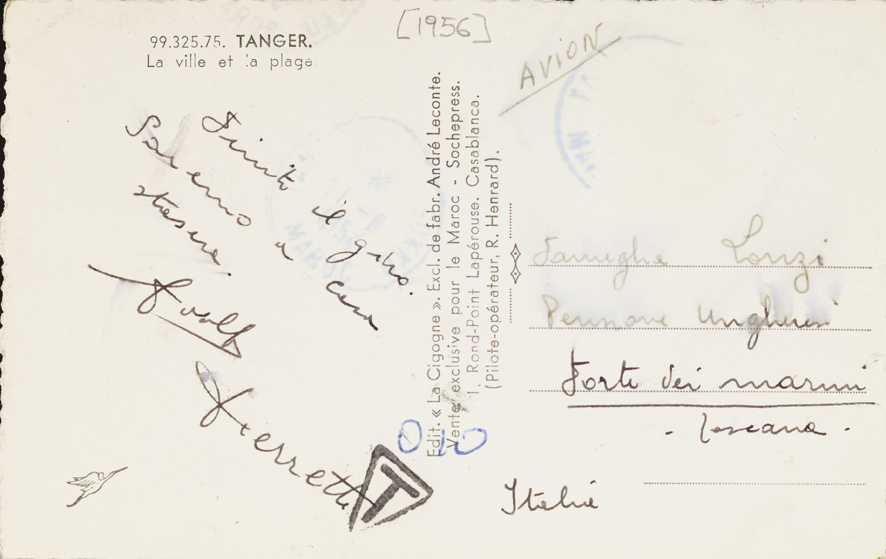 [1956]
99.325.75. TANGER.
La ville et la plage
AVION
Finito il giro.
Saremo a casa
stasera.
Pierrette
Edit. « La Cigogne ». Excl. de fabr. André Leconte.
Vente exclusive pour le Maroc - Sochepress.
1, Rond-Point Lapérouse. Casablanca.
(Pilote-opérateur, R. Henrard).
Famiglia Lonzi
Pensione Ungheresi
Forte dei marmi
- Toscana -
Italie
T